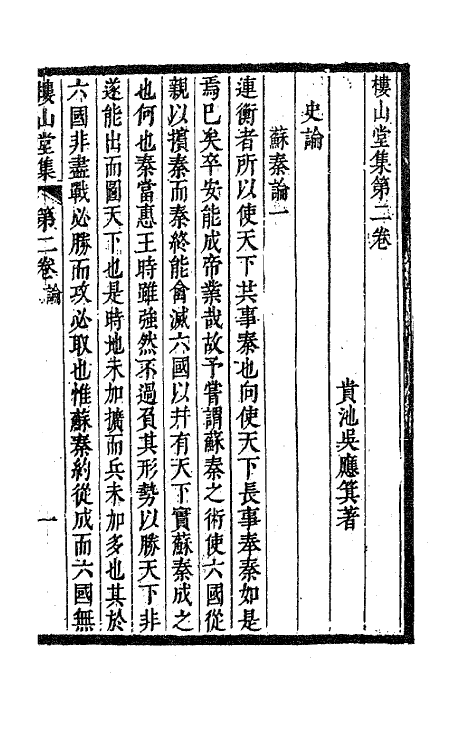 樓山堂集第二卷
貴池吳應箕著
史論
蘇秦論一
連衡者所以使天下共事秦也向使天下長事奉秦如是
焉巳矣卒安能成帝業哉故予嘗謂蘇秦之術使六國從
親以擯秦而秦終能禽滅六國以并有天下實蘇秦成之
也何也秦當惠王時雖強然不過負其形勢以勝天下非
遂能出而圖天下也是時地未加擴而兵未加多也其於
六國非盡戰必勝而攻必取也惟蘇秦約從成而六國無
樓山堂集 第二卷 論 一